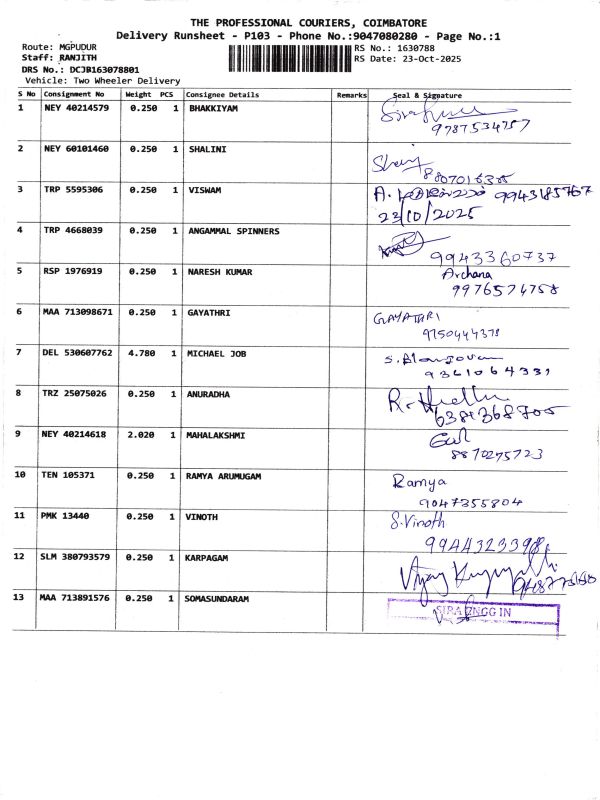 THE PROFESSIONAL COURIERS, COIMBATORE
Delivery Runsheet - P103 - Phone No.:9047080280 - Page No.:1
Route: MGPUDUR
RS No.: 1630788
Staff: RANJITH
RS Date: 23-Oct-2025
DRS No.: DCJB163078801
Vehicle: Two Wheeler Delivery
S No Consignment No Weight PCS Consignee Details Remarks Seal & Signature
1 NEY 40214579 0.250 1 BHAKKIYAM
9787534757
2 NEY 60101460 0.250 1 SHALINI
3 TRP 5595306 0.250 1 VISWAM A. 9943185767
23/10/2025
4 TRP 4668039 0.250 1 ANGAMMAL SPINNERS
9943360737
5 RSP 1976919 0.250 1 NARESH KUMAR Archana
9976574758
6 MAA 713098671 0.250 1 GAYATHRI GAYATHRI
9750444378
7 DEL 530607762 4.780 1 MICHAEL JOB
9361064331
8 TRZ 25075026 0.250 1 ANURADHA
9 NEY 40214618 2.020 1 MAHALAKSHMI
8870275723
10 TEN 105371 0.250 1 RAMYA ARUMUGAM Ramya
9047355804
11 PMK 13440 0.250 1 VINOTH S.Vinoth
12 SLM 380793579 0.250 1 KARPAGAM
13 MAA 713891576 0.250 1 SOMASUNDARAM SIRA ENGG IN